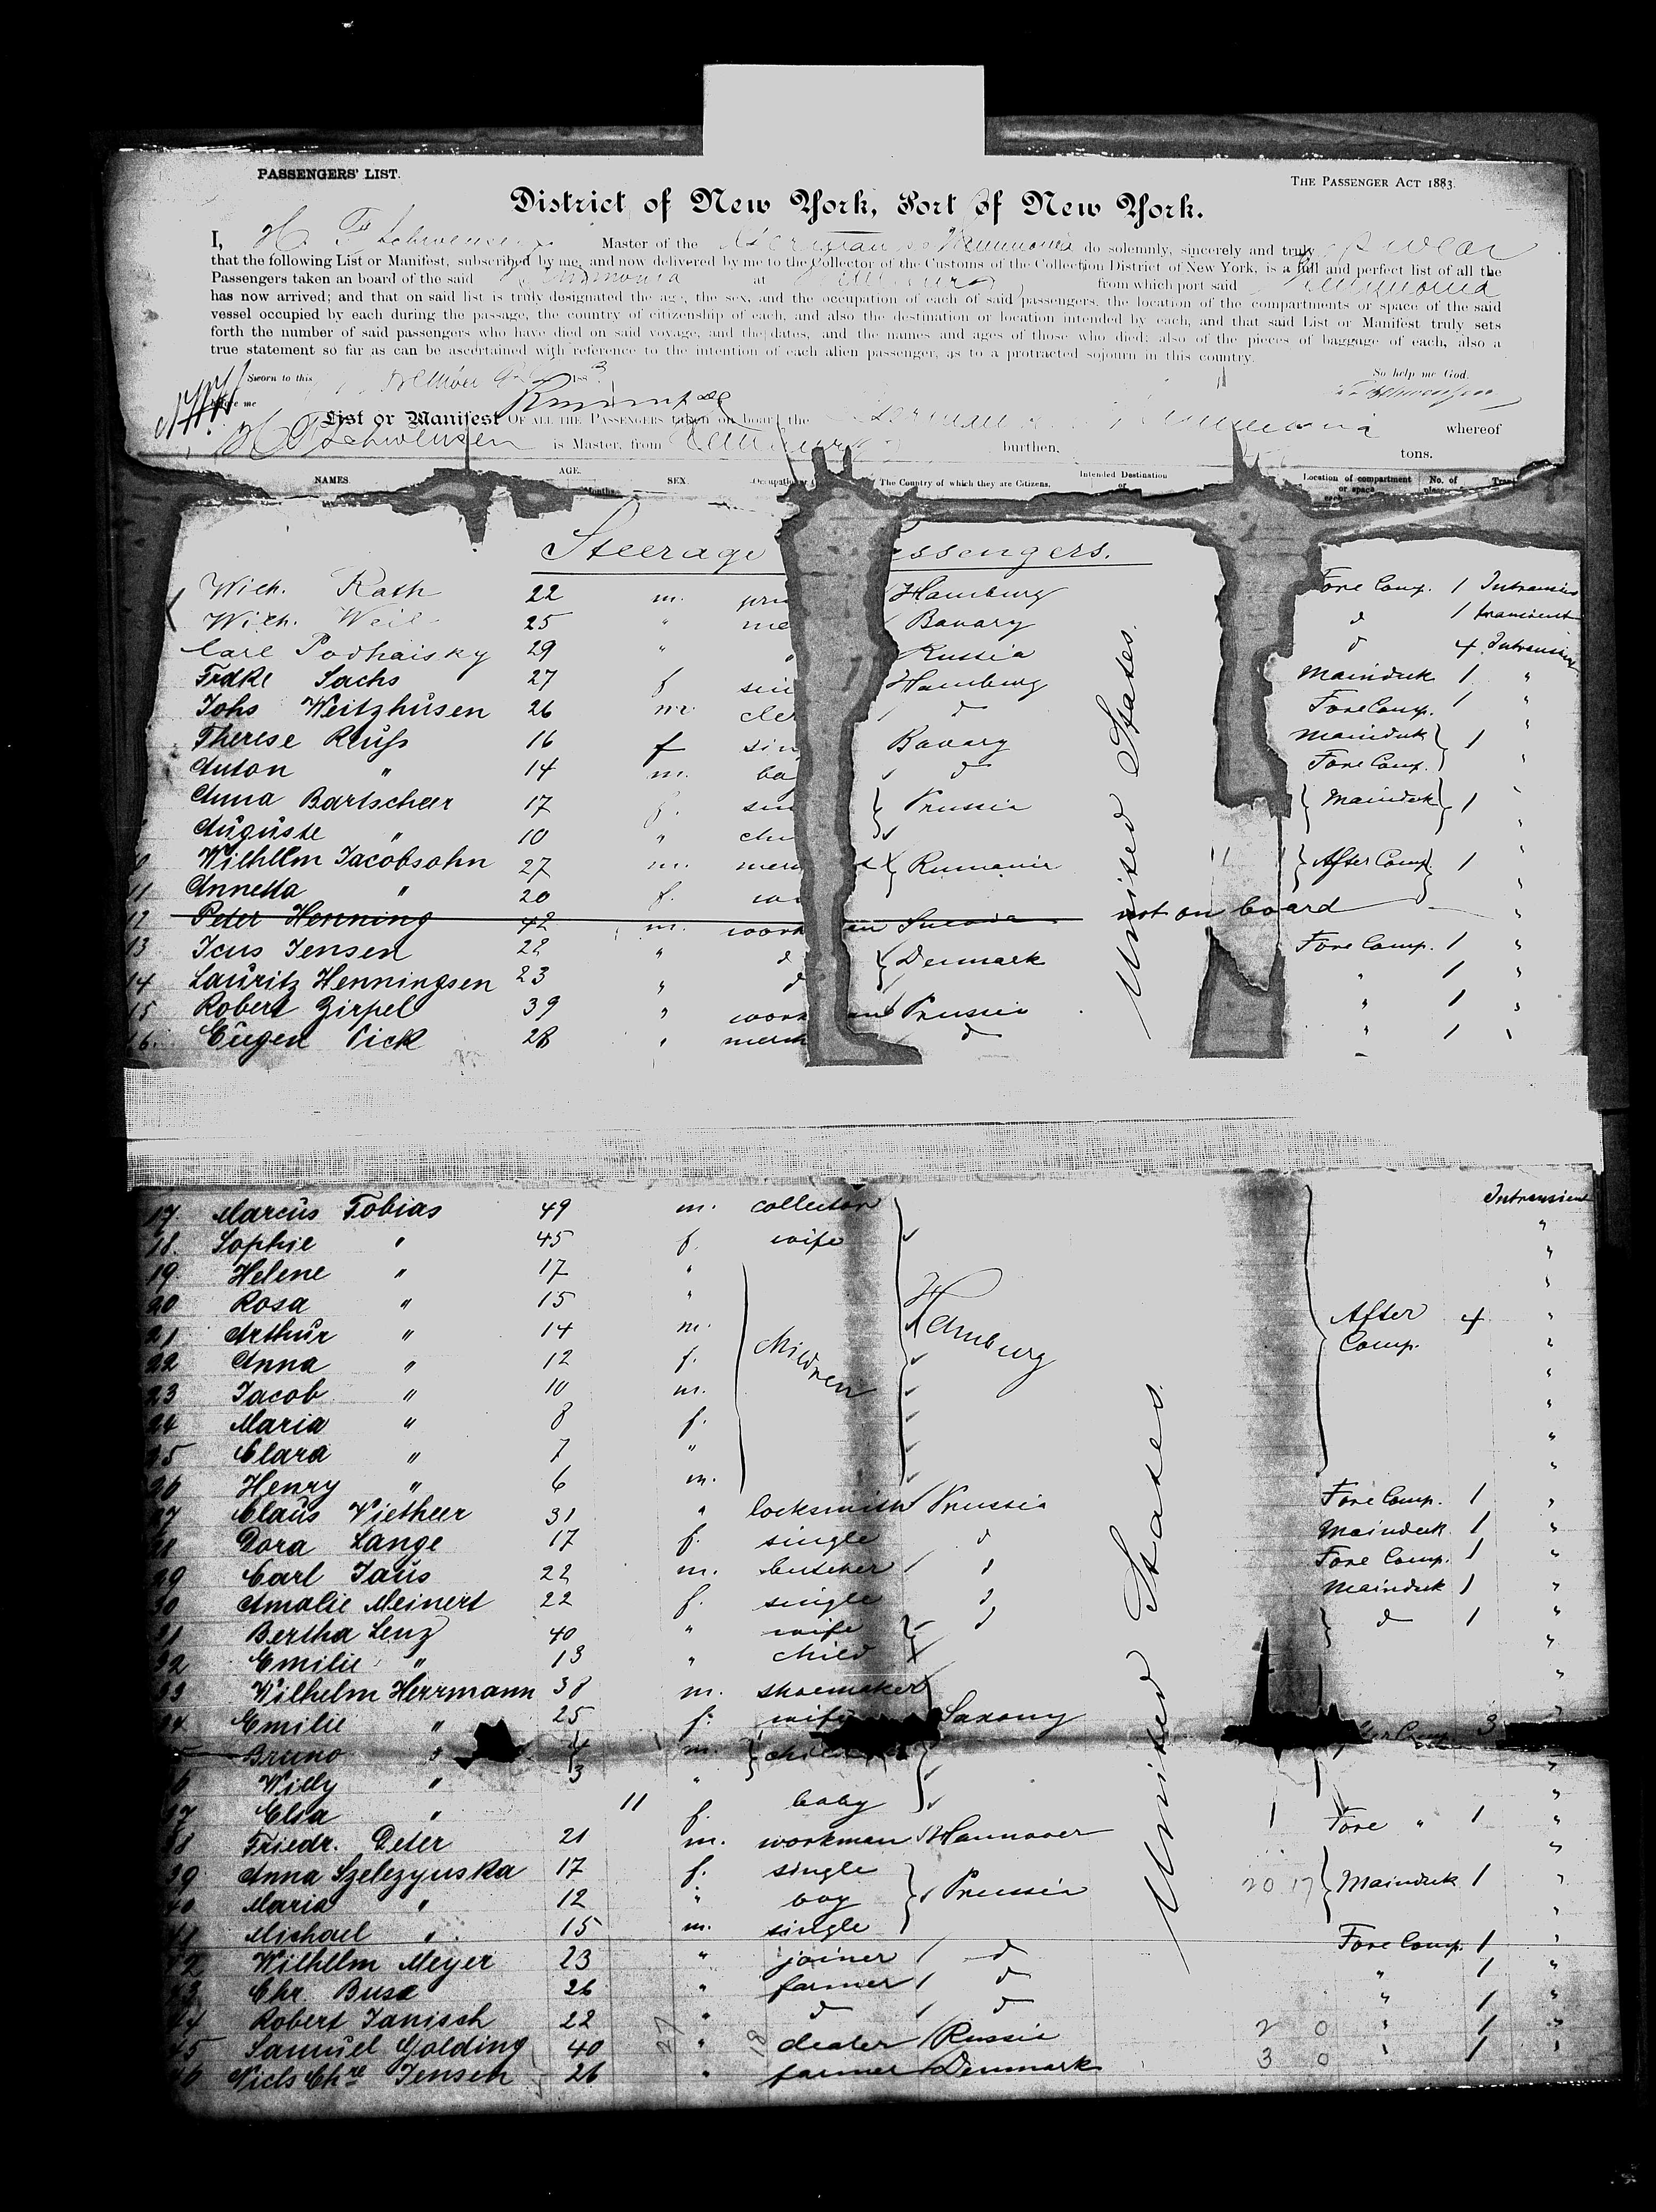 PASSENGERS' LIST.
THE PASSENGER ACT 1883.
District of New York, Port of New York.
I, H. F. Schwensen Master of the German Hammonia do solemnly, sincerely and truly swear
that the following List or Manifest, subscribed by me, and now delivered by me to the Collector of the Customs of the Collection District of New York, is a full and perfect list of all the
Passengers taken an board of the said Hammonia at from which port said Hammonia
has now arrived; and that on said list is truly designated the age, the sex, and the occupation of each of said passengers, the location of the compartments or space of the said
vessel occupied by each during the passage, the country of citizenship of each, and also the destination or location intended by each, and that said List or Manifest truly sets
forth the number of said passengers who have died on said voyage, and the dates, and the names and ages of those who died; also of the pieces of baggage of each, also a
true statement so far as can be ascertained with reference to the intention of each alien passenger, as to a protracted sojourn in this country.
Sworn to this 1883
So help me God.
before me
List or Manifest OF ALL THE PASSENGERS taken on board the German Hammonia whereof
H F Schwensen is Master, from burthen, tons.
NAMES. AGE. Months SEX. Occupation The Country of which they are Citizens. Intended Destination or Location of compartment or space No. of
Steerage Passengers.
Wilh. Rath 22 m. Hamburg Fore Comp. 1 Intransient
Wilh. Weil 25 " Bavary d 1 transient
Carl Podhaisky 29 " " Russia d 4 Intransient
Frdke Sachs 27 f sin Hamburg Maindeck 1 "
Johs Weitzhusen 26 m cler d Fore Comp. 1 "
Therese Reuss 16 f sin Bavary Maindeck } 1 "
Anton " 14 m. d Fore Comp. "
Anna Bartscheer 17 f. sin } Prussia { Maindeck } 1 "
Auguste " 10 " "
10 Wilhelm Jacobsohn 27 m. merch { Rumania { After Comp. } 1 "
11 Annetta " 20 f. "
12 Peter Henning 42 m. workman not on board "
13 Jens Jensen 22 " d { Denmark Fore Comp. 1 "
14 Lauritz Henningsen 23 " d " 1 "
15 Robert Zirpel 39 " workman Prussia " 1 "
16. Eugen Pick 28 " merch d " 1 "
United States.
17. Marcus Tobias 49 m. collector Intransient
18. Sophie " 45 f. wife "
19 Helene " 17 " "
20 Rosa " 15 " "
21 Arthur " 14 m. children Hamburg After Comp. 4 "
22 Anna " 12 f. "
23 Jacob " 10 m. "
24 Maria " 8 f. "
25 Clara " 7 " "
26 Henry " 6 m. "
27 Claus Vietheer 31 " locksmith Prussia Fore Comp. 1 "
28 Dora Lange 17 f. single d Maindeck 1 "
29 Carl Jaus 22 m. butcher d Fore Comp. 1 "
30 Amalie Meinert 22 f. single d Maindeck 1 "
31 Bertha Lenz 40 " wife d } d 1 "
32 Emilie " 13 " child "
33 Wilhelm Herrmann 38 m. shoemaker "
34 Emilie " 25 f. wife Saxony 3 "
Bruno " 4 m.
36 Willy " 3 " "
37 Elsa " 11 f. baby "
38 Friedr. Peter 21 m. workman Hannover 1 Fore " 1 "
39 Anna Szelezynska 17 f. single } Prussia 20 17 { Maindeck 1 "
40 Maria " 12 " boy "
41 Michael " 15 m. single "
42 Wilhelm Meyer 23 " joiner d Fore Comp. 1 "
43 Chr. Buse 26 " farmer d " 1 "
44 Robert Janisch 22 " d d " 1 "
45 Samuel Golding 40 " dealer Russia 2 0 " 1 "
46 Niels Chre Jensen 26 " farmer Denmark 3 0 " 1 "
United States.